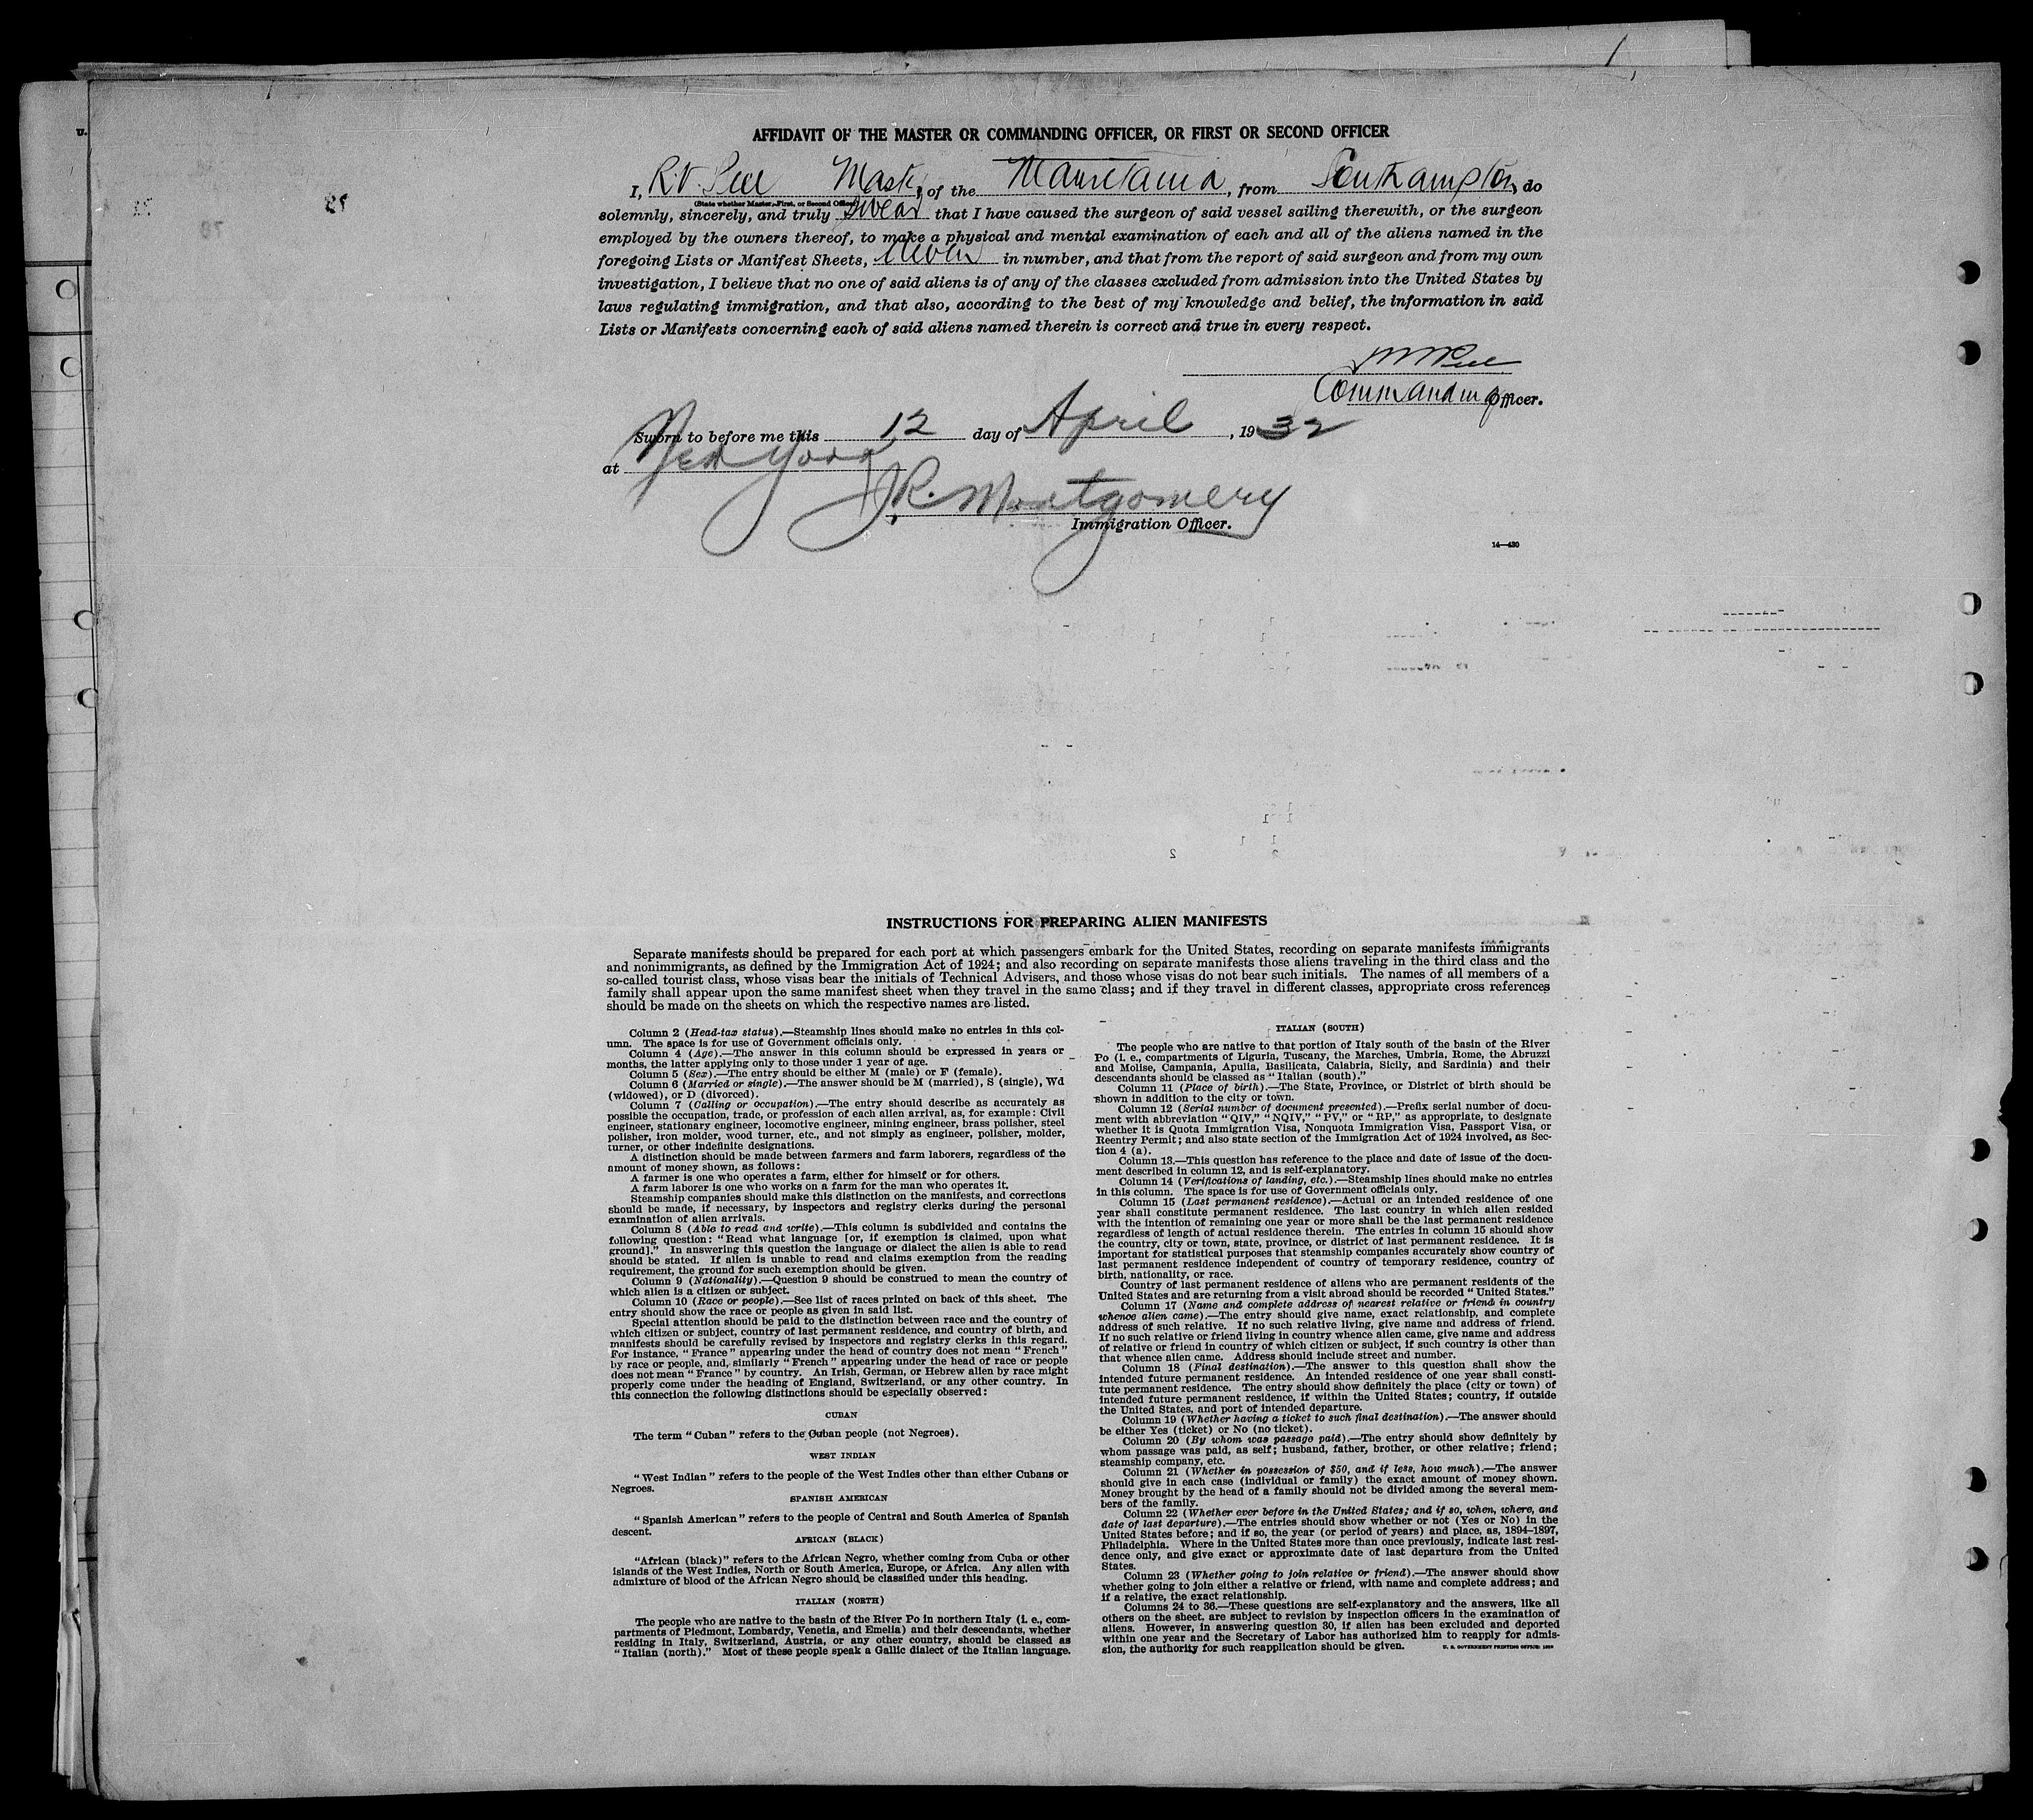 AFFIDAVIT OF THE MASTER OR COMMANDING OFFICER, OR FIRST OR SECOND OFFICER
I, R.V. Peel Master, of the Mauretania, from Southampton, do
(State whether Master, First, or Second Officer)
solemnly, sincerely, and truly swear that I have caused the surgeon of said vessel sailing therewith, or the surgeon
employed by the owners thereof, to make a physical and mental examination of each and all of the aliens named in the
foregoing Lists or Manifest Sheets, eleven in number, and that from the report of said surgeon and from my own
investigation, I believe that no one of said aliens is of any of the classes excluded from admission into the United States by
laws regulating immigration, and that also, according to the best of my knowledge and belief, the information in said
Lists or Manifests concerning each of said aliens named therein is correct and true in every respect.
Peel
Commanding Officer.
Sworn to before me this 12 day of April, 1932
at New York
J.R. Montgomery
Immigration Officer.
14—430
INSTRUCTIONS FOR PREPARING ALIEN MANIFESTS
Separate manifests should be prepared for each port at which passengers embark for the United States, recording on separate manifests immigrants
and nonimmigrants, as defined by the Immigration Act of 1924; and also recording on separate manifests those aliens traveling in the third class and the
so-called tourist class, whose visas bear the initials of Technical Advisers, and those whose visas do not bear such initials. The names of all members of a
family shall appear upon the same manifest sheet when they travel in the same class; and if they travel in different classes, appropriate cross references
should be made on the sheets on which the respective names are listed.
Column 2 (Head-tax status).—Steamship lines should make no entries in this col-
umn. The space is for use of Government officials only.
Column 4 (Age).—The answer in this column should be expressed in years or
months, the latter applying only to those under 1 year of age.
Column 5 (Sex).—The entry should be either M (male) or F (female).
Column 6 (Married or single).—The answer should be M (married), S (single), Wd
(widowed), or D (divorced).
Column 7 (Calling or occupation).—The entry should describe as accurately as
possible the occupation, trade, or profession of each alien arrival, as, for example: Civil
engineer, stationary engineer, locomotive engineer, mining engineer, brass polisher, steel
polisher, iron molder, wood turner, etc., and not simply as engineer, polisher, molder,
turner, or other indefinite designations.
A distinction should be made between farmers and farm laborers, regardless of the
amount of money shown, as follows:
A farmer is one who operates a farm, either for himself or for others.
A farm laborer is one who works on a farm for the man who operates it.
Steamship companies should make this distinction on the manifests, and corrections
should be made, if necessary, by inspectors and registry clerks during the personal
examination of alien arrivals.
Column 8 (Able to read and write).—This column is subdivided and contains the
following question: "Read what language [or, if exemption is claimed, upon what
ground]." In answering this question the language or dialect the alien is able to read
should be stated. If alien is unable to read and claims exemption from the reading
requirement, the ground for such exemption should be given.
Column 9 (Nationality).—Question 9 should be construed to mean the country of
which alien is a citizen or subject.
Column 10 (Race or people).—See list of races printed on back of this sheet. The
entry should show the race or people as given in said list.
Special attention should be paid to the distinction between race and the country of
which citizen or subject, country of last permanent residence, and country of birth, and
manifests should be carefully revised by inspectors and registry clerks in this regard.
For instance, "France" appearing under the head of country does not mean "French"
by race or people, and, similarly "French" appearing under the head of race or people
does not mean "France" by country. An Irish, German, or Hebrew alien by race might
properly come under the heading of England, Switzerland, or any other country. In
this connection the following distinctions should be especially observed:
CUBAN
The term "Cuban" refers to the Cuban people (not Negroes).
WEST INDIAN
"West Indian" refers to the people of the West Indies other than either Cubans or
Negroes.
SPANISH AMERICAN
"Spanish American" refers to the people of Central and South America of Spanish
descent.
AFRICAN (BLACK)
"African (black)" refers to the African Negro, whether coming from Cuba or other
islands of the West Indies, North or South America, Europe, or Africa. Any alien with
admixture of blood of the African Negro should be classified under this heading.
ITALIAN (NORTH)
The people who are native to the basin of the River Po in northern Italy (i. e., com-
partments of Piedmont, Lombardy, Venetia, and Emelia) and their descendants, whether
residing in Italy, Switzerland, Austria, or any other country, should be classed as
"Italian (north)." Most of these people speak a Gallic dialect of the Italian language.
ITALIAN (SOUTH)
The people who are native to that portion of Italy south of the basin of the River
Po (i. e., compartments of Liguria, Tuscany, the Marches, Umbria, Rome, the Abruzzi
and Molise, Campania, Apulia, Basilicata, Calabria, Sicily, and Sardinia) and their
descendants should be classed as "Italian (south)."
Column 11 (Place of birth).—The State, Province, or District of birth should be
shown in addition to the city or town.
Column 12 (Serial number of document presented).—Prefix serial number of docu-
ment with abbreviation "QIV," "NQIV," "PV," or "RP," as appropriate, to designate
whether it is Quota Immigration Visa, Nonquota Immigration Visa, Passport Visa, or
Reentry Permit; and also state section of the Immigration Act of 1924 involved, as Sec-
tion 4 (a).
Column 13.—This question has reference to the place and date of issue of the docu-
ment described in column 12, and is self-explanatory.
Column 14 (Verifications of landing, etc.).—Steamship lines should make no entries
in this column. The space is for use of Government officials only.
Column 15 (Last permanent residence).—Actual or an intended residence of one
year shall constitute permanent residence. The last country in which alien resided
with the intention of remaining one year or more shall be the last permanent residence
regardless of length of actual residence therein. The entries in column 15 should show
the country, city or town, state, province, or district of last permanent residence. It is
important for statistical purposes that steamship companies accurately show country of
last permanent residence independent of country of temporary residence, country of
birth, nationality, or race.
Country of last permanent residence of aliens who are permanent residents of the
United States and are returning from a visit abroad should be recorded "United States."
Column 17 (Name and complete address of nearest relative or friend in country
whence alien came).—The entry should give name, exact relationship, and complete
address of such relative. If no such relative living, give name and address of friend.
If no such relative or friend living in country whence alien came, give name and address
of relative or friend in country of which citizen or subject, if such country is other than
that whence alien came. Address should include street and number.
Column 18 (Final destination).—The answer to this question shall show the
intended future permanent residence. An intended residence of one year shall consti-
tute permanent residence. The entry should show definitely the place (city or town) of
intended future permanent residence, if within the United States; country, if outside
the United States, and port of intended departure.
Column 19 (Whether having a ticket to such final destination).—The answer should
be either Yes (ticket) or No (no ticket).
Column 20 (By whom was passage paid).—The entry should show definitely by
whom passage was paid, as self; husband, father, brother, or other relative; friend;
steamship company, etc.
Column 21 (Whether in possession of $50, and if less, how much).—The answer
should give in each case (individual or family) the exact amount of money shown.
Money brought by the head of a family should not be divided among the several mem-
bers of the family.
Column 22 (Whether ever before in the United States; and if so, when, where, and
date of last departure).—The entries should show whether or not (Yes or No) in the
United States before; and if so, the year (or period of years) and place, as, 1894–1897,
Philadelphia. Where in the United States more than once previously, indicate last resi-
dence only, and give exact or approximate date of last departure from the United
States.
Column 23 (Whether going to join relative or friend).—The answer should show
whether going to join either a relative or friend, with name and complete address; and
if a relative, the exact relationship.
Columns 24 to 36.—These questions are self-explanatory and the answers, like all
others on the sheet, are subject to revision by inspection officers in the examination of
aliens. However, in answering question 30, if alien has been excluded and deported
within one year and the Secretary of Labor has authorized him to reapply for admis-
sion, the authority for such reapplication should be given.
U. S. GOVERNMENT PRINTING OFFICE: